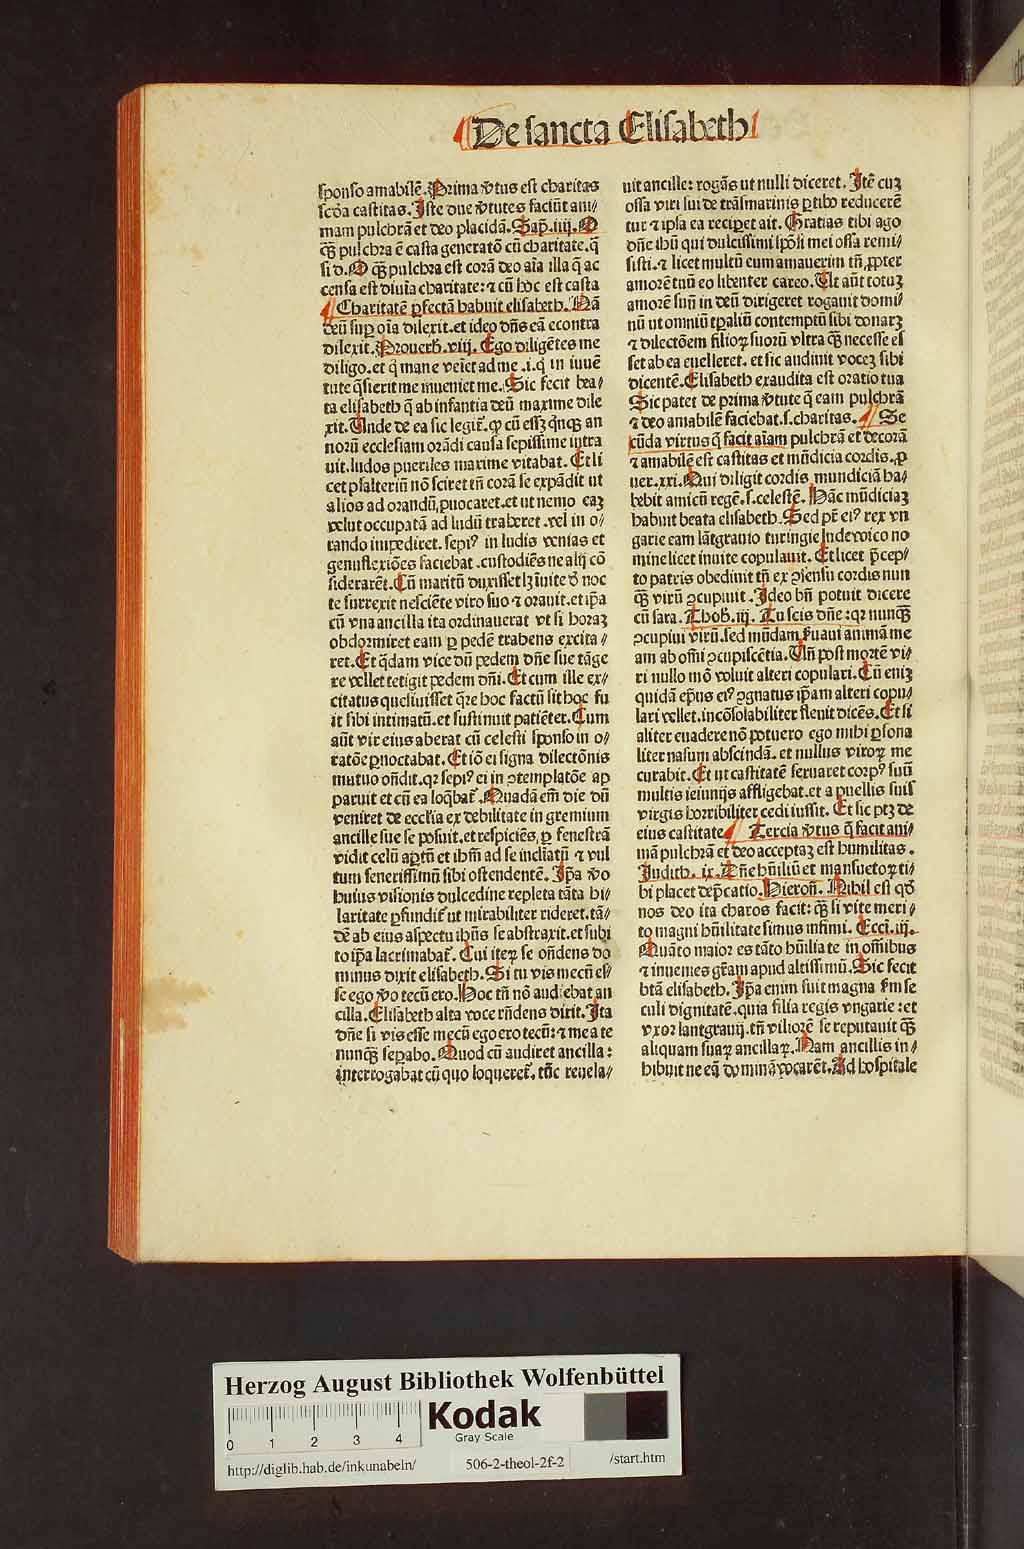 De sancta Elisabeth
sponso amabilē. Prima v̄tus est charitas
scd̓a castitas. Iste due v̄tutes faciūt ani⸗
mam pulchrā et deo placidā. Sap̄. iiij. O
qȝ̄ pulchra ē casta generatō cū charitate. q̄
si d. O qȝ̄ pulchra est corā deo aīa illa q̄ ac
censa est diuīa charitate: ⁊ cū hoc est casta
¶ Charitatē ꝑfectā habuit elisabeth. Nā
deū suꝑ oīa dilexit. et ideo dn̄s eā econtra
dilexit. Prouerb̄. viij. Ego diligētes me
diligo. et q̇ mane veīet ad me .i. q̇ in iuuē
tute q̄sierit me inueniet me. Sic fecit bea⸗
ta elisabeth q̄ ab infantia deū maxime dile
xit. Unde de ea sic legit᷑. ꝙ cū eēȝ q̇nqȝ an
norū ecclesiam orādi causa sepissime intra
uit. ludos pueriles maxime vitabat. Et li
cet psalteriū nō sciret tn̄ corā se expādit ut
alios ad orandū ꝓuocaret. et ut nemo eaȝ
velut occupatā ad ludū traheret. vel in o⸗
rando impediret. sepiꝰ in ludis venias et
genuflexiōes faciebat. custodiēs ne alij cō
siderarēt. Cū maritū duxisset lȝ īuite d̓ noc
te surrexit nesciēte viro suo ⁊ orauit. et ip̄a
cū vna ancilla ita ordinauerat vt si horaȝ
obdormiret eam ꝑ pedē trahens excita⸗
ret. Et q̄dam vice dū pedem dn̄e sue tāge
re vellet tetigit pedem dn̄i. Et cum ille ex⸗
citatus quesiuisset q̄re hoc factū sit hoc fu
it sibi intimatū. et sustinuit patiēter. Cum
aūt vir eius aberat cū celesti sponso in o⸗
ratōe ꝑnoctabat. Et iō ei signa dilectōnis
mutuo on̄dit. qꝛ sepiꝰ ei in ꝯtemplatōe ap
paruit et cū ea loq̄bat᷑. Quadā em̄ die dū
veniret de eccl̓ia ex debilitate in gremium
ancille sue se posuit. et respiciēs ꝑ fenestrā
vidit celū aꝑtū et ibm̄ ad se inclīatū ⁊ vul
tum serenissimū sibi ostendentē. Ip̄a v̓o
huius visionis dulcedine repleta tāta hi⸗
laritate ꝑfundit᷑ ut mirabiliter rideret. tā⸗
dē ab eius aspectu ih̄us se abstraxit. et subi
to ip̄a lacrimabat᷑. Cui iteꝝ se on̄dens do
minus dixit elisabeth. Si tu vis mecū es⸗
se ego v̓o tecū ero. Hoc tn̄ nō audiebat an
cilla. Elisabeth alta voce rn̄dens dixit. Ita
dn̄e si vis esse mecū ego ero tecū: ⁊ me a te
nunqȝ̄ seꝑabo. Quod cū audiret ancilla:
interrogabat cū quo loqueret᷑. tūc reuela⸗
uit ancille: rogās ut nulli diceret. Itē cuȝ
ossa viri sui de trāsmarinis ꝑtibꝰ reducerē
tur ⁊ ipsa ea reciꝑet ait. Gratias tibi ago
dn̄e ih̄u qui dulcissimi spōsi mei ossa remi⸗
sisti. ⁊ licet multū eum amauerim tn̄ ꝓpter
amorē tuū eo libenter careo. Ut aūt totuȝ
amorē suū in deū dirigeret rogauit domi⸗
nū ut omniū tꝑaliū contemptū sibi donarȝ
⁊ dilectōem filioꝝ suorū vltra qȝ̄ necesse es
set ab ea euelleret. et sic audiuit voceȝ sibi
dicentē. Elisabeth exaudita est oratio tua
Sic patet de prima v̄tute q̄ eam pulchrā
⁊ deo amabilē faciebat. s. charitas. ¶ Se
cūda virtus q̄ facit aīam pulchrā et decorā
⁊ amabilē est castitas et mūdicia cordis. ꝓ
uer. xxi. Qui diligit cordis mundiciā ha⸗
bebit amicū regē. s. celestē. Hāc mūdiciaȝ
habuit beata elisabeth. Sed pr̄ eiꝰ rex vn
garie eam lātgrauio turingie ludewico no
mine licet inuite copulauit. Et licet p̄cep⸗
to patris obediuit tn̄ ex ꝯsensu cordis nun
qȝ̄ virū ꝯcupiuit. Ideo bn̄ potuit dicere
cū sara. Thob̄. iij. Tu scis dn̄e: qꝛ nunqȝ̄
ꝯcupiui virū. sed mūdam ẜuaui animā me
am ab om̄i ꝯcupiscētia. Un̄ post mortē vi⸗
ri nullo mō voluit alteri copulari. Cū eniȝ
quidā ep̄us eiꝰ ꝯgnatus ip̄am alteri copu⸗
lari vellet. incōsolabiliter fleuit dicēs. Et si
aliter euadere nō potuero ego mihi ꝑsona
liter nasum abscindā. et nullus viroꝝ me
curabit. Et ut castitatē seruaret corpꝰ suū
multis ieiunijs affligebat. et a puellis suis
virgis horribiliter cedi iussit. Et sic ptȝ de
eius castitate ¶ Tercia v̄tus q̄ facit ani⸗
mā pulchrā et deo acceptaȝ est humilitas.
Judith. ix. Dn̄e hūiliū et mansuetoꝝ ti⸗
bi placet dep̄catio. Hieron̄. Nihil est qd̓
nos deo ita charos facit: qȝ̄ si vite meri⸗
to magni hūilitate simus infimi. Ecci. iij.
Quāto maior es tāto hūilia te in om̄ibus
⁊ inuenies gr̄am apud altissimū. Sic fecit
btā elisabeth. Ip̄a enim fuit magna ẜm se
culi dignitatē. quia filia regis vngarie: et
vxor lantgrauij. tn̄ viliorē se reputauit qȝ̄
aliquam suaꝝ ancillaꝝ. Nam ancillis in⸗
hibuit ne eā dominā vocarēt. Ad hospitale
Herzog August Bibliothek Wolfenbüttel
Kodak
Gray Scale
0 1 2 3 4
http://diglib.hab.de/inkunabeln/ 506-2-theol-2f-2 /start.htm